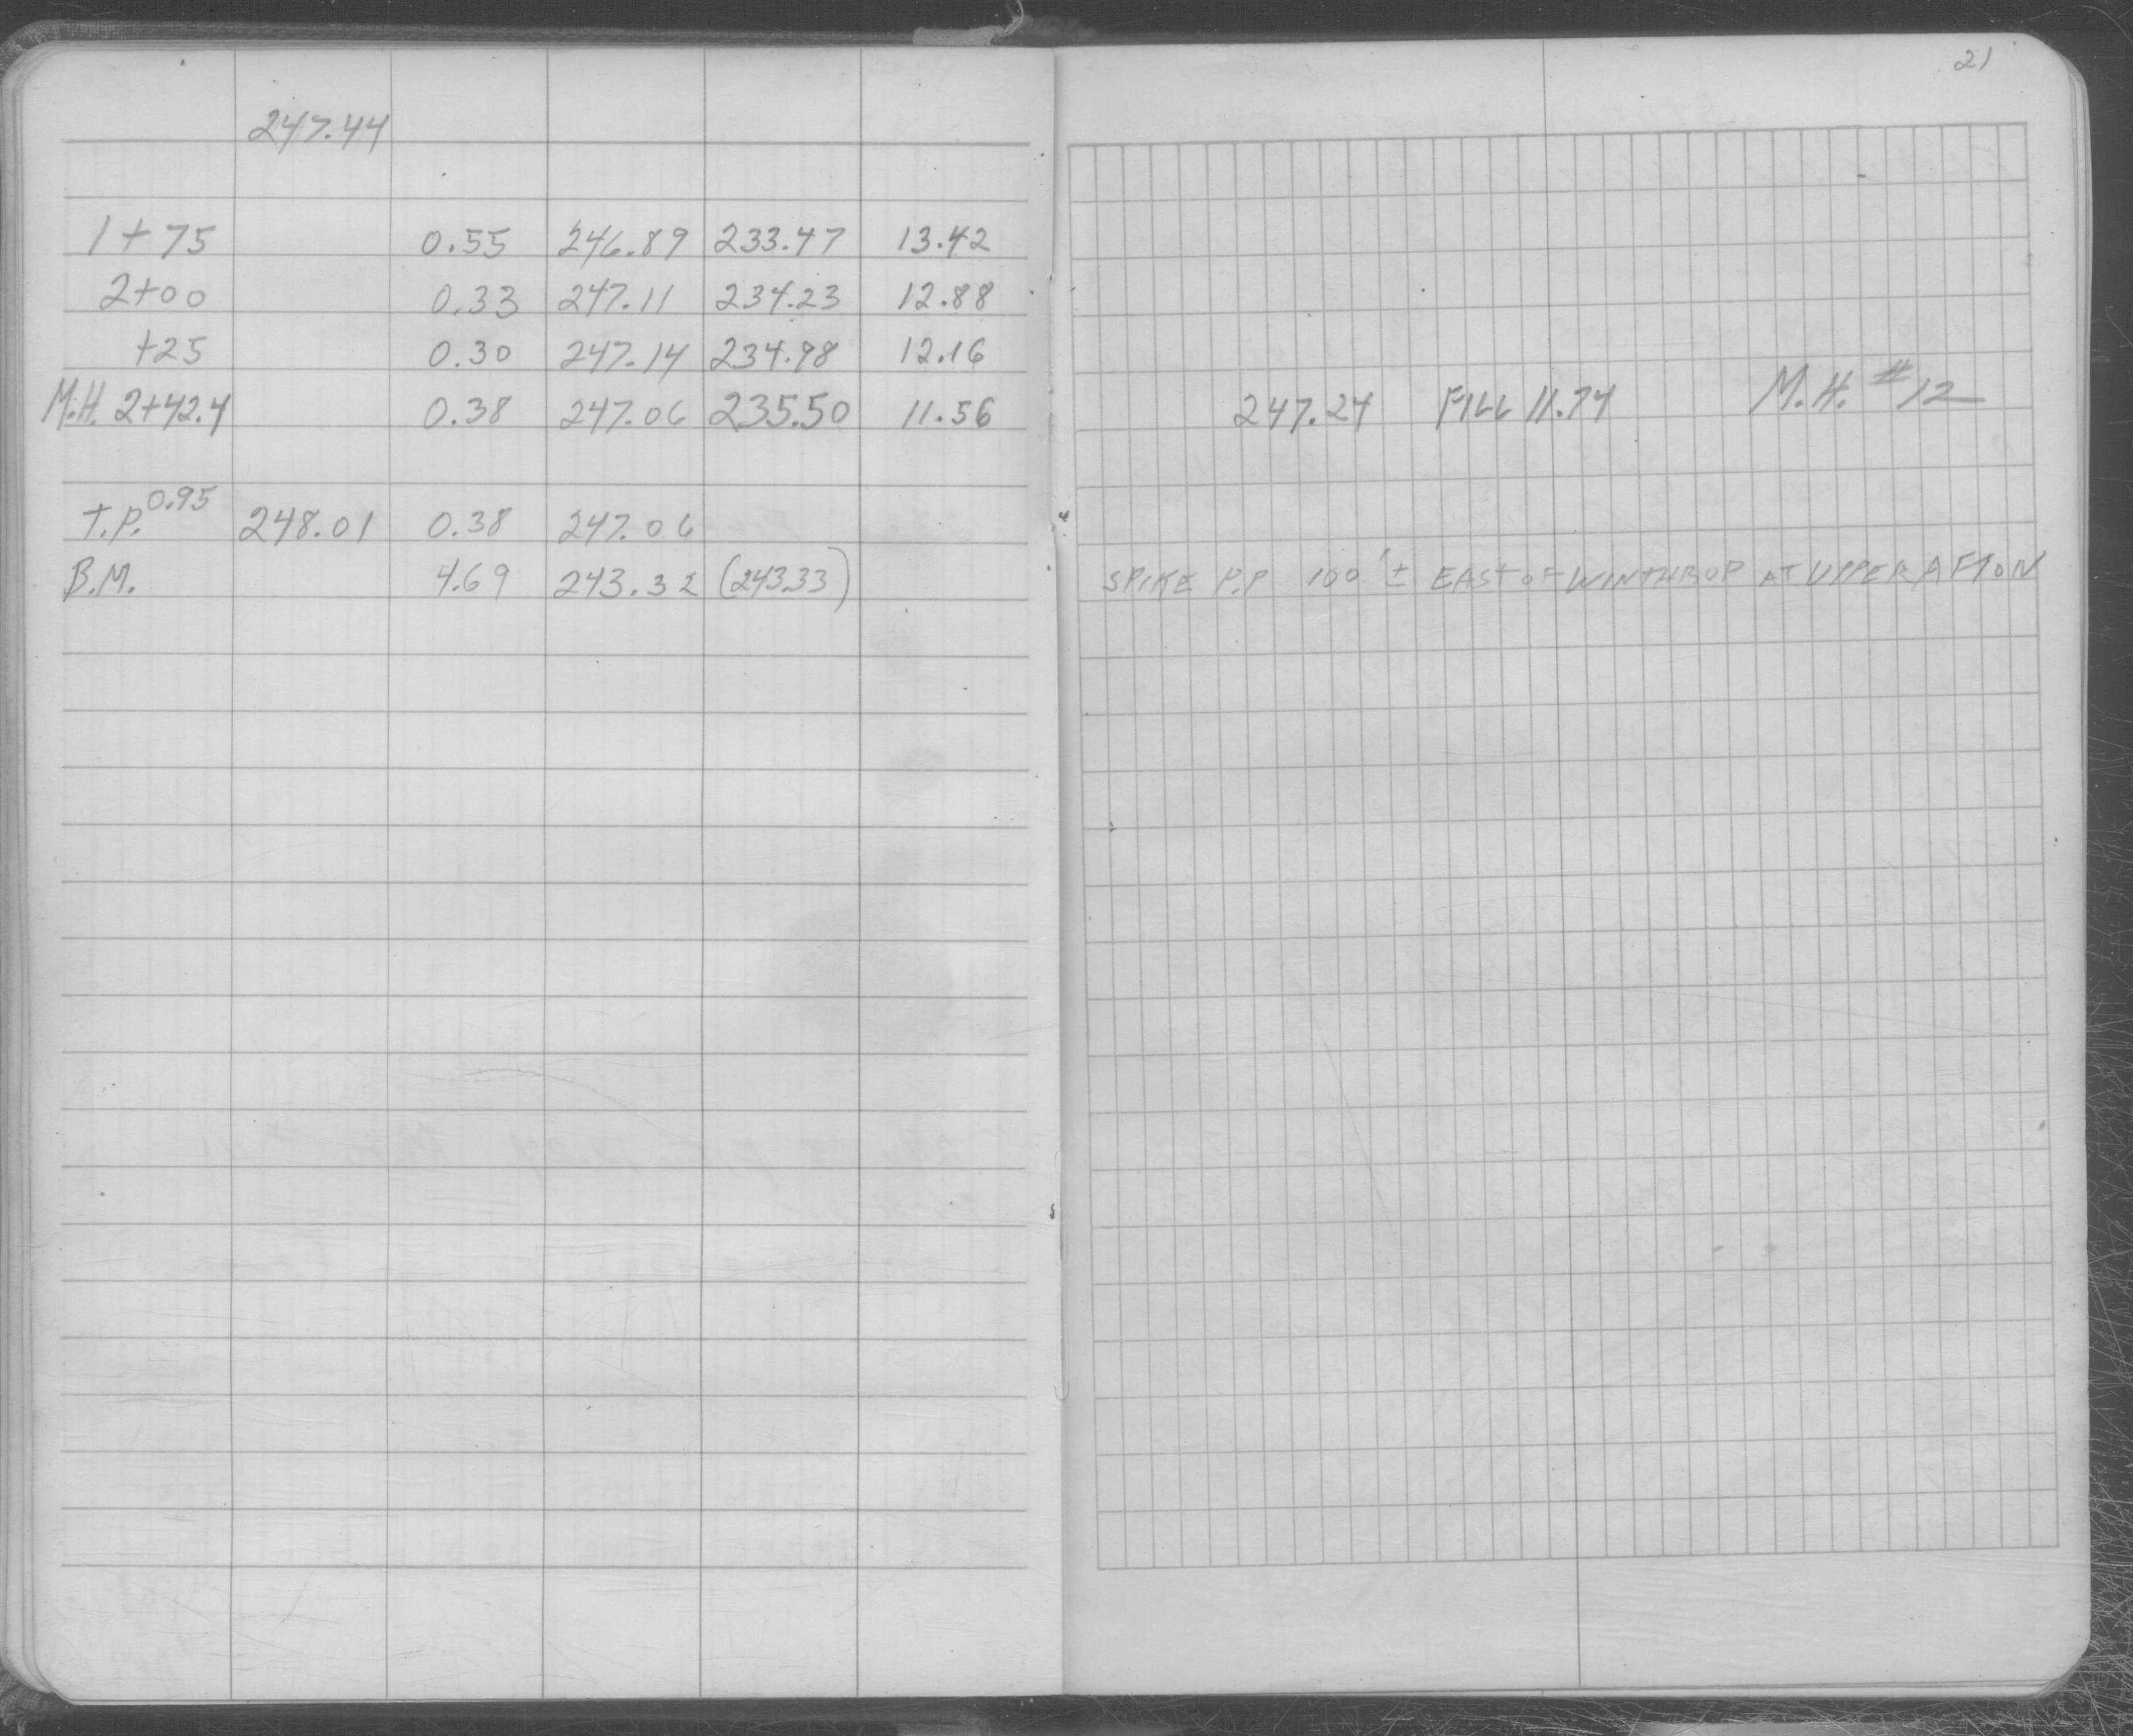 21
247.44
1+75 0.55 246.89 233.47 13.42
2+00 0.33 247.11 234.23 12.88
+25 0.30 247.14 234.98 12.16
M.H. 2+42.4 0.38 247.06 235.50 11.56 247.24 FILL 11.74 M.H. #12
T.P. 0.95 248.01 0.38 247.06
B.M. 4.69 243.32 (243.33) SPIKE P.P 100'± EAST OF WINTHROP AT UPPER AFTON